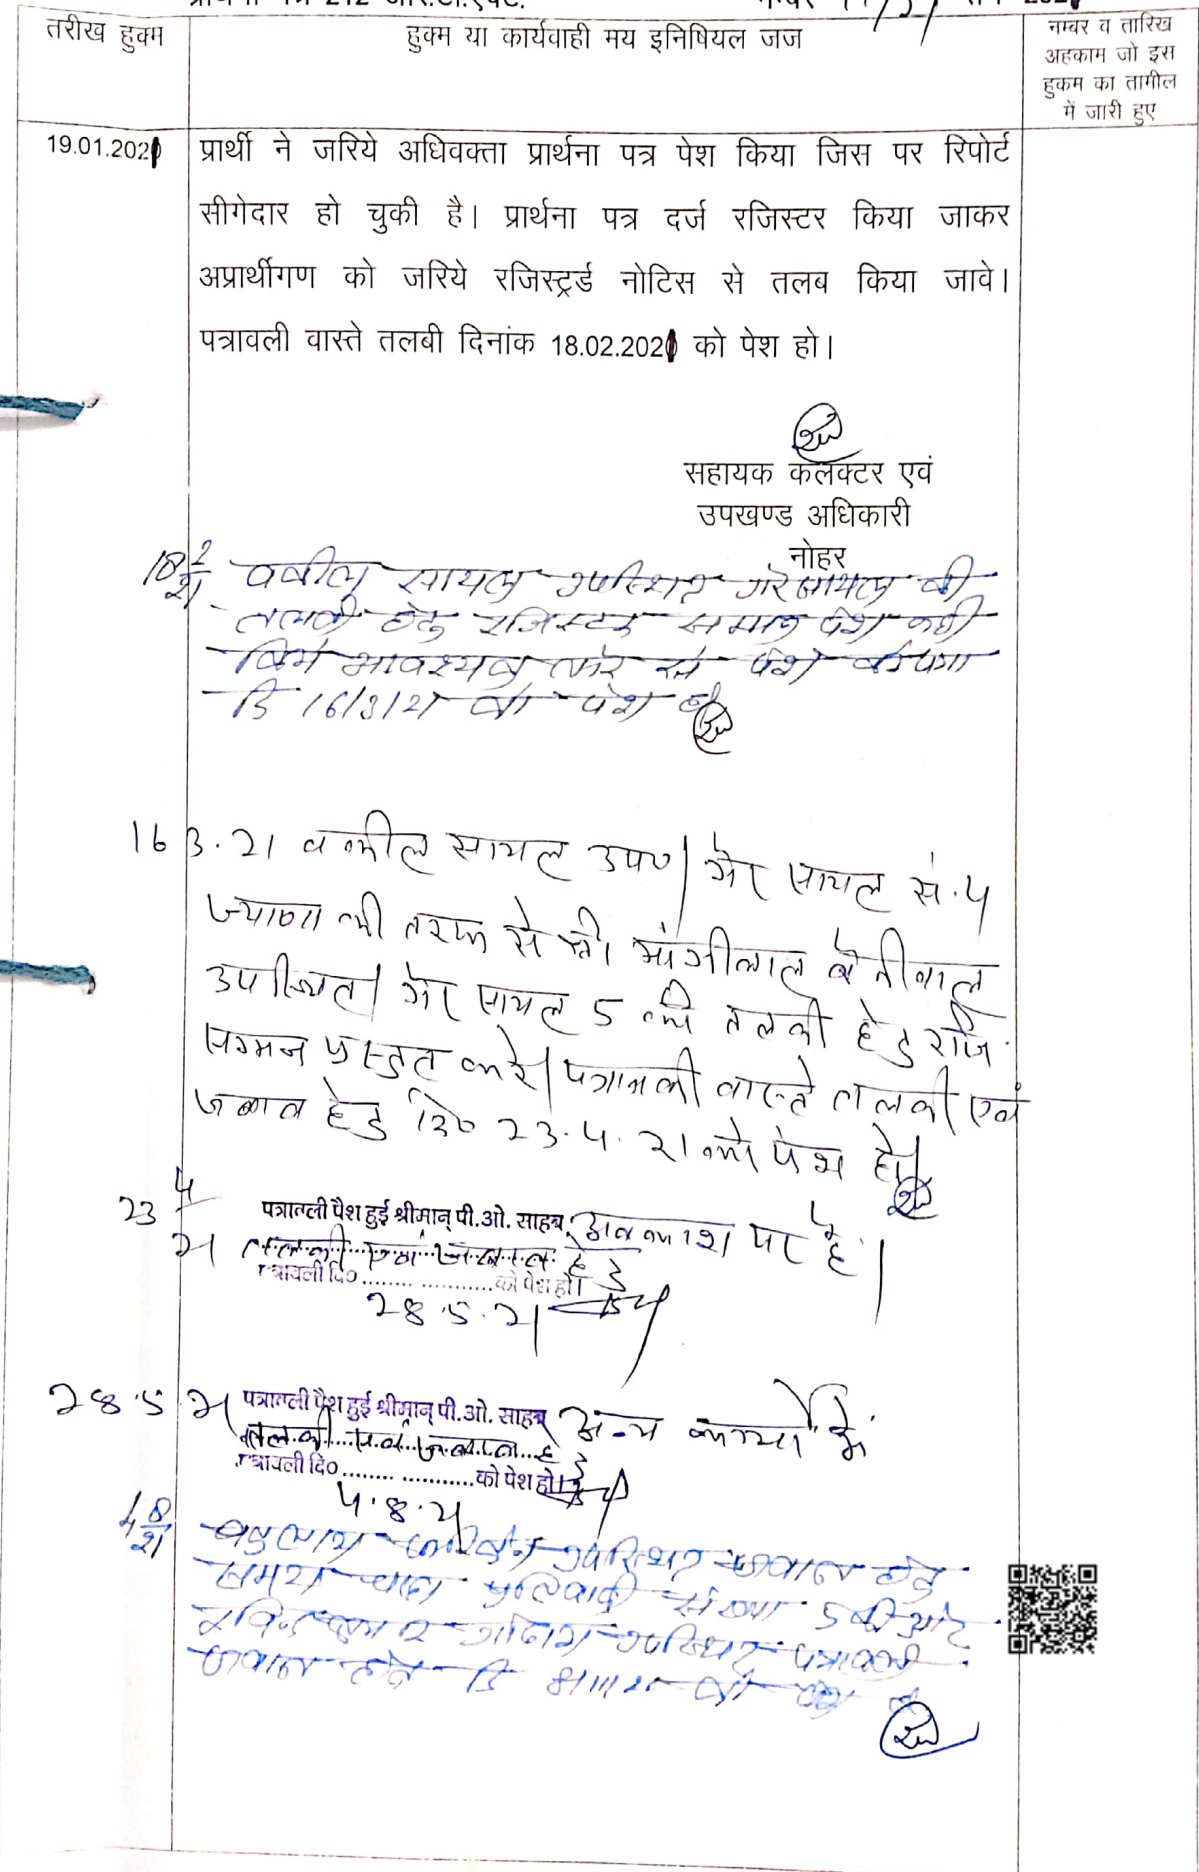 प्रार्थना पत्र 212 आर.टी.एक्ट.
तरीख हुक्म
हुक्म या कार्यवाही मय इनिषियल जज
नम्बर व तारिख
अहकाम जो इस
हुकम का तामील
में जारी हुए
19.01.2021 प्रार्थी ने जरिये अधिवक्ता प्रार्थना पत्र पेश किया जिस पर रिपोर्ट
सीगेदार हो चुकी है। प्रार्थना पत्र दर्ज रजिस्टर किया जाकर
अप्रार्थीगण को जरिये रजिस्ट्रर्ड नोटिस से तलब किया जावे।
पत्रावली वास्ते तलबी दिनांक 18.02.2021 को पेश हो।
सहायक कलक्टर एवं
उपखण्ड अधिकारी
नोहर
18 2/21 वकील सायल उपस्थित गैरसायल की
तलबी हेतु रजिस्टर्ड समन पेश नही
किये आवश्यक रूप से पेश
दि 16/3/21 को पेश हो
16 3.21 वकील सायल उप०। गैर सायल सं. 4
की तरफ से श्री मांगीलाल बैनीवाल
उपस्थित। गैर सायल 5 की तलबी हेतु रजि.
सम्मन प्रस्तुत करे। पत्रावली वास्ते तलबी एवं
जबाव हेतु दि० 23.4.21 को पेश हो।
23 4/21 पत्रावली पेश हुई श्रीमान् पी.ओ. साहब अवकाश पर है।
तलबी एवं जबाव हेतु
पत्रावली दि० .................... को पेश हो।
28.5.21
28.5.21 पत्रावली पेश हुई श्रीमान् पी.ओ. साहब अन्य कार्यो में
तलबी एवं जबाव हेतु
पत्रावली दि० .................... को पेश हो।
4.8.21
4 8/21 उपस्थित जवाब हेतु
समय चाहा प्रतिवादी संख्या 5 की ओर
उपस्थित पत्रावली
जवाब हेतु दि को पेश